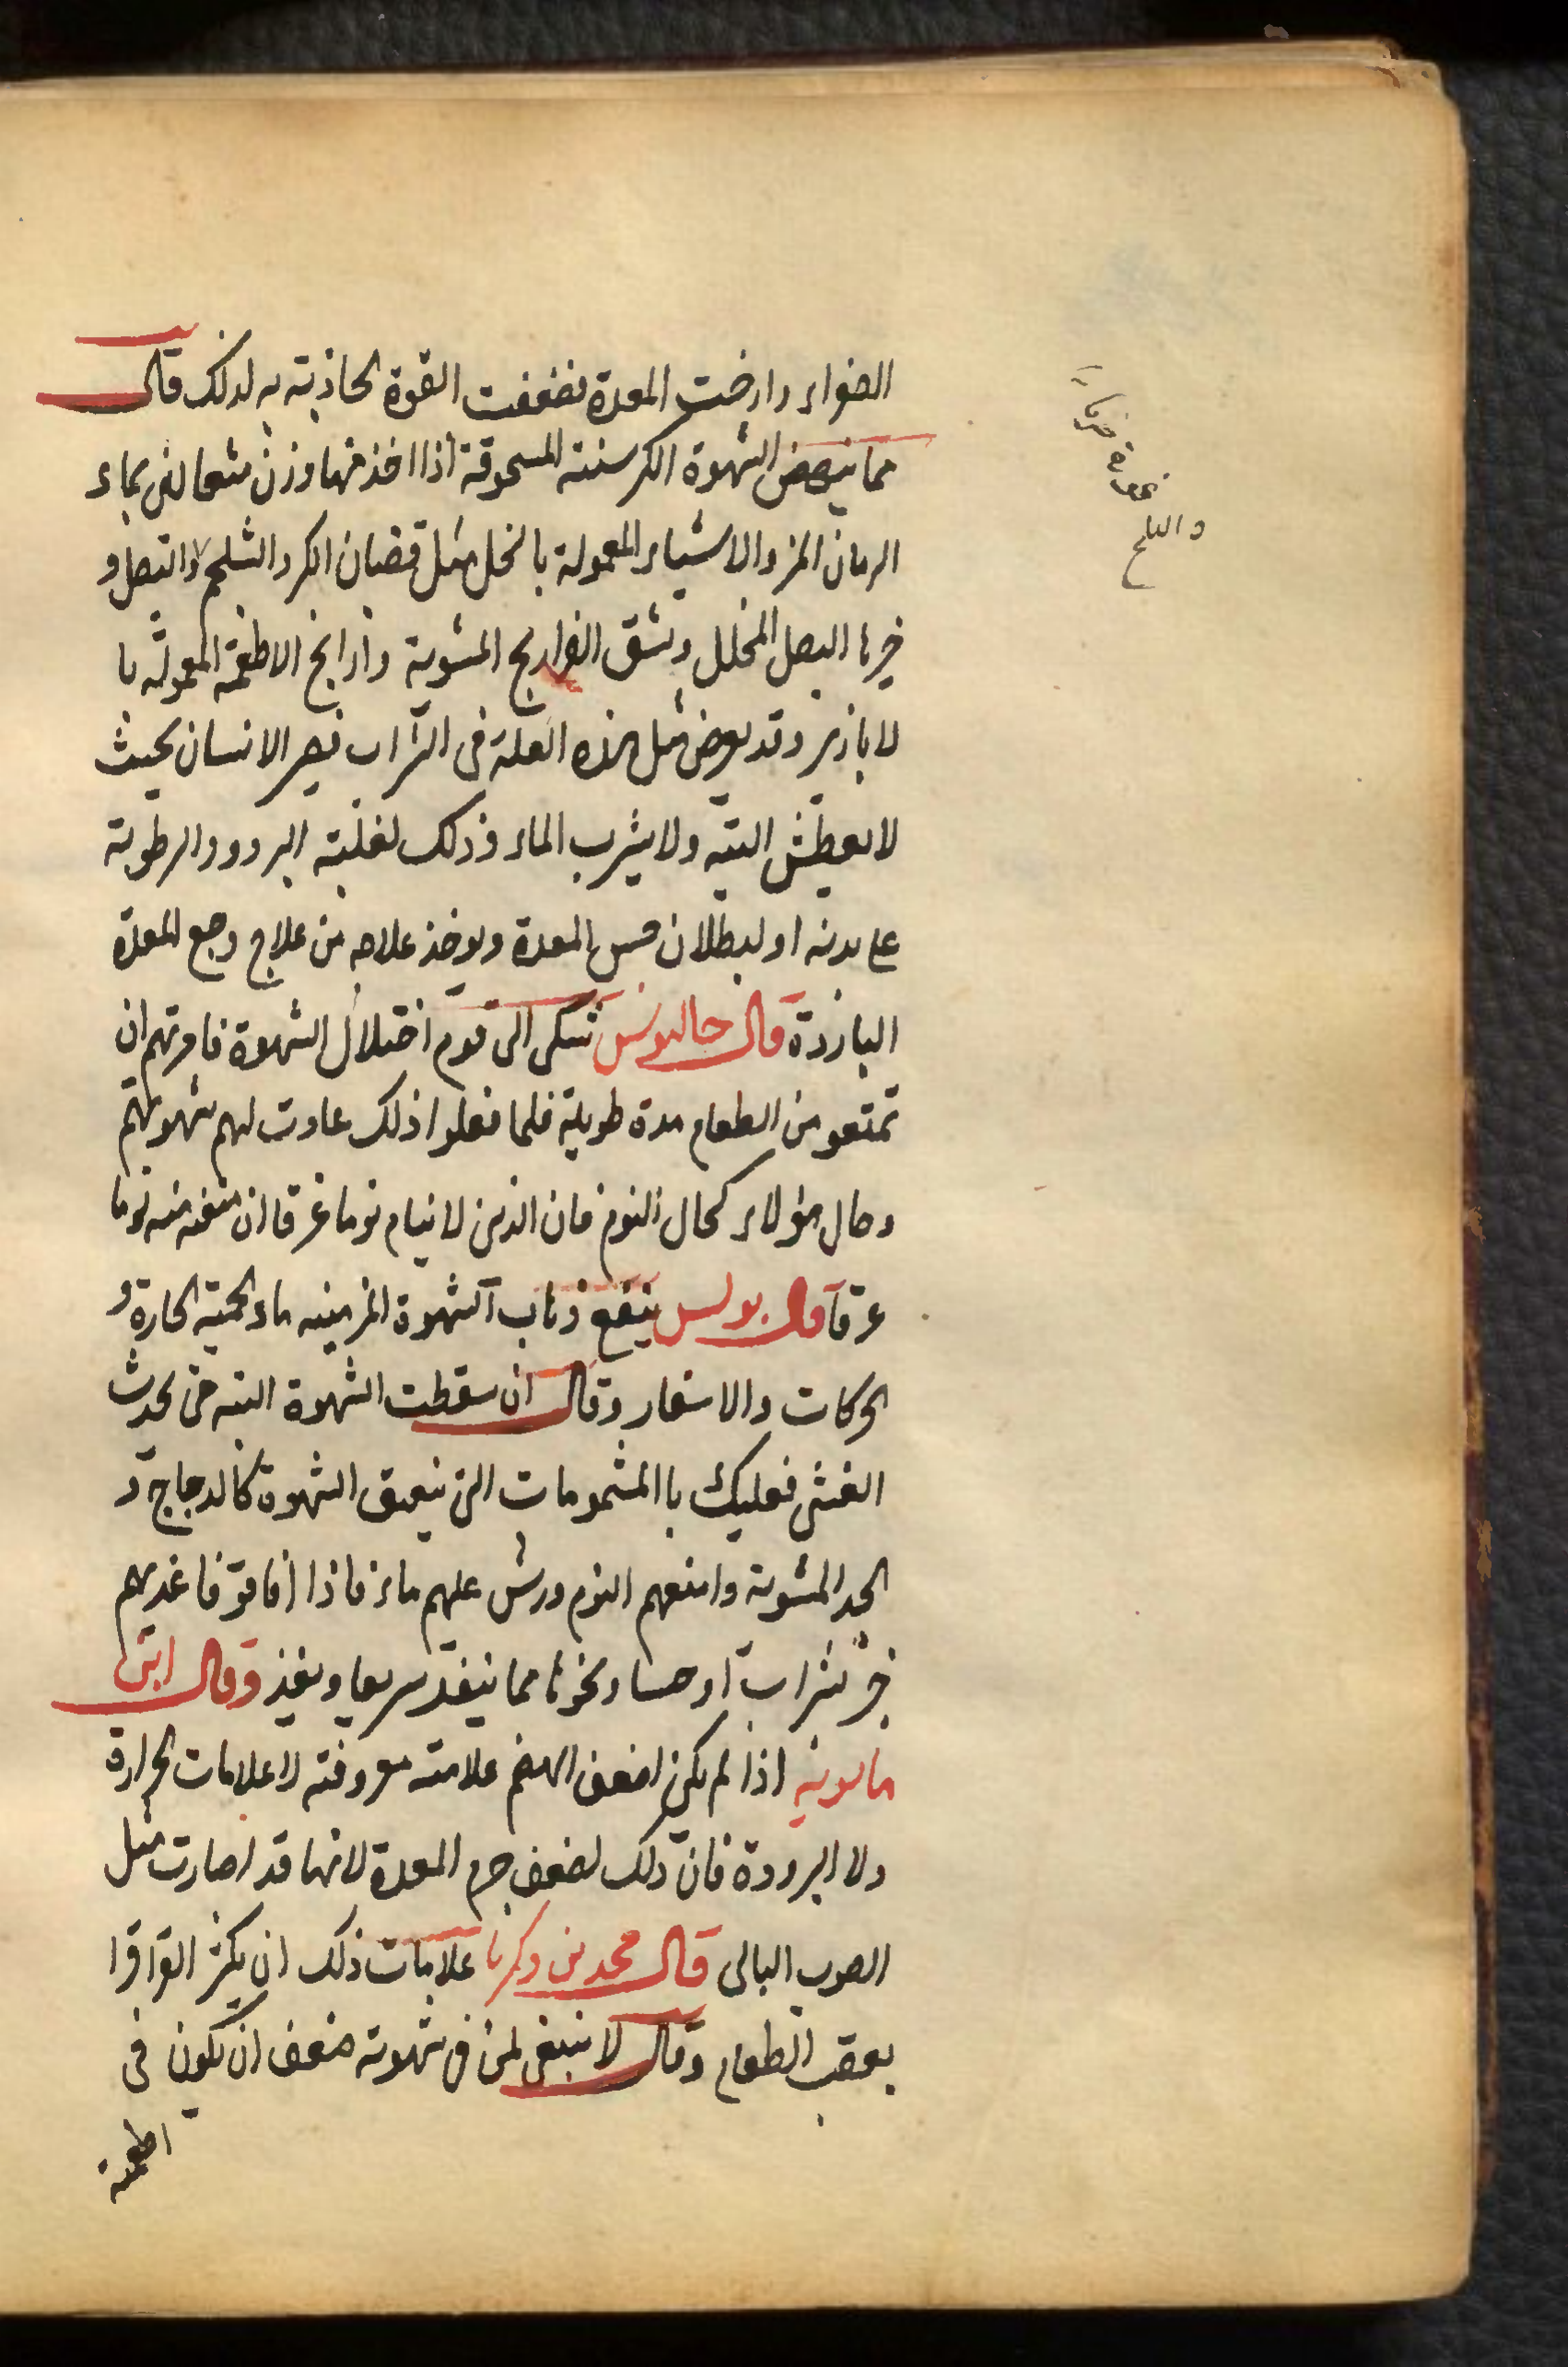 الصفراء وارخت المعدة فضعفت القوة الجاذبة به لذلك قال
مما ينهض الشهوة الكرسنة المسحوقة اذا اخذ منها وزن مثقالين بماء
الرمان المز والاشياء المعمولة بالخل مثل قضبان الكر والشلجم والبصل و
خيرها البصل المخلل ونشق الفراريج المشوية وارايح الاطعمة المعمولة با
لابازير وقد يعرض مثل هذه العلة في الشراب فيصير الانسان بحيث
لا يعطش البتة ولا يشرب الماء وذلك لغلبة البرد والرطوبة
على بدنه او لبطلان حس المعدة ويوخذ علاجه من علاج وجع المعدة
الباردة قال جالينوس شكى الى قوم اختلال الشهوة فامرتهم ان
تمتعو من الطعام مدة طويلة فلما فعلوا ذلك عادت لهم شهوتهم
وحال هؤلاء كحال النوم فان الذين لا ينام نوما غرقا ان منعته منه نوما
غرقا قال بولس ينفع ذهاب الشهوة المزمنة ماء الحمية الحارة و
الحركات والاسفار وقال ان سقطت الشهوة البتة حتى يحدث
الغشى فعليك باالمشمومات التى ينعق الشهوة كالدجاج و
الجد المشوية وامنعهم النوم ورش عليهم ماء فاذا افاقو فاغديهم
خبز بشراب او حساء ونحوها مما ينفذ سريعا ويغذ وقال ابن
ماسويه اذا لم يكن لضعف الهضم علامته معروفته لا علامات الحرارة
ولا البرودة فان ذلك لضعف جرم المعدة لانها قد صارت مثل
الثوب البالى قال محمد بن زكريا علامات ذلك ان يكثر القراقرا
بعقب الطعام وقال لا ينبغى لمن فى شهوته ضعف ان يكون فى
اطعمة